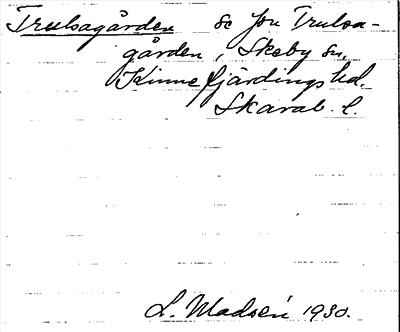 Trulsagården se Jon Trulsa-
gården, Skeby sn,
Kinnefjärdings hd.
Skarab. l.
L. Madsén 1930.